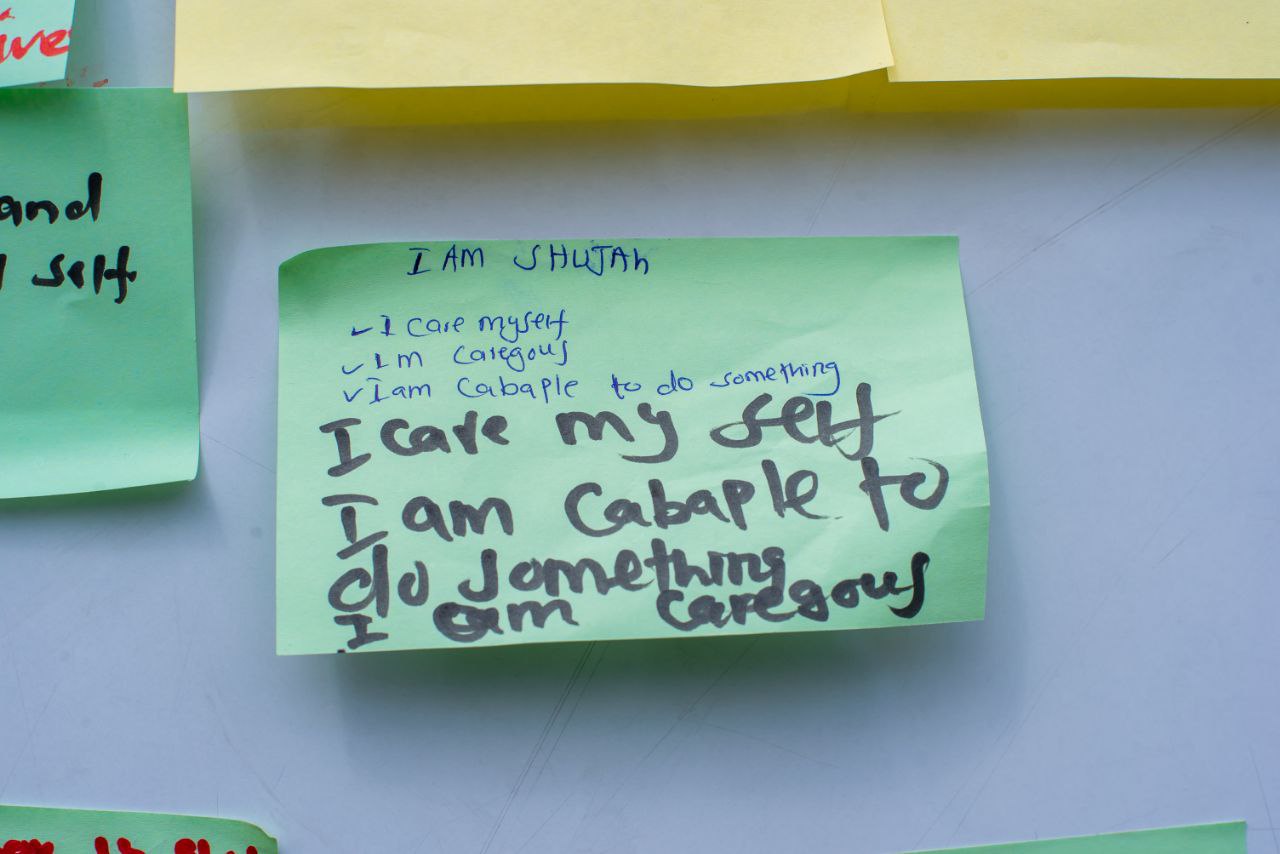 and
self
I AM SHUJAh
✓ I care myself
✓ I m caregous
✓ I am cabaple to do something
I care my self
I am cabaple to
do something
I am caregous